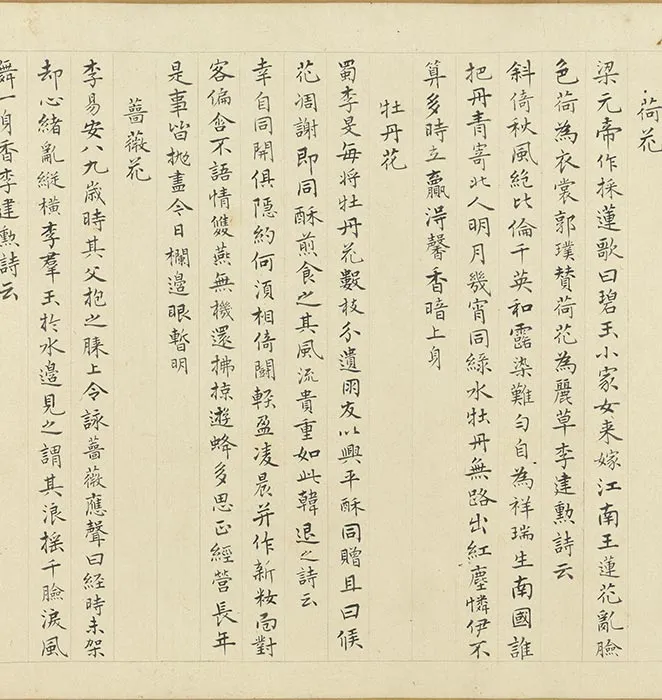 荷花
梁元帝作採蓮歌曰碧玉小家女来嫁江南王蓮花亂臉
色荷為衣裳郭璞賛荷花為麗草李建勲詩云
斜倚秋風絶比倫千英和露染難勻自為祥瑞生南國誰
把丹青寄北人明月幾宵同緑水牡丹無路出紅塵憐伊不
算多時立贏得馨香暗上身
牡丹花
蜀李旻每將牡丹花數枝分遺朋友以興平酥同贈且曰候
花凋謝即同酥煎食之其風流貴重如此韓退之詩云
幸自同開俱隠約何須相倚鬪輕盈凌晨并作新粧面對
客偏含不語情雙燕無機還拂掠遊蜂多思正經營長年
是事皆抛盡今日欄邊眼暫明
薔薇花
李易安八九歳時其父抱之膝上令詠薔薇應聲曰経時未架
却心緒亂縱横李羣玉於水邊見之謂其浪摇千臉淚風
舞一身香李建勲詩云